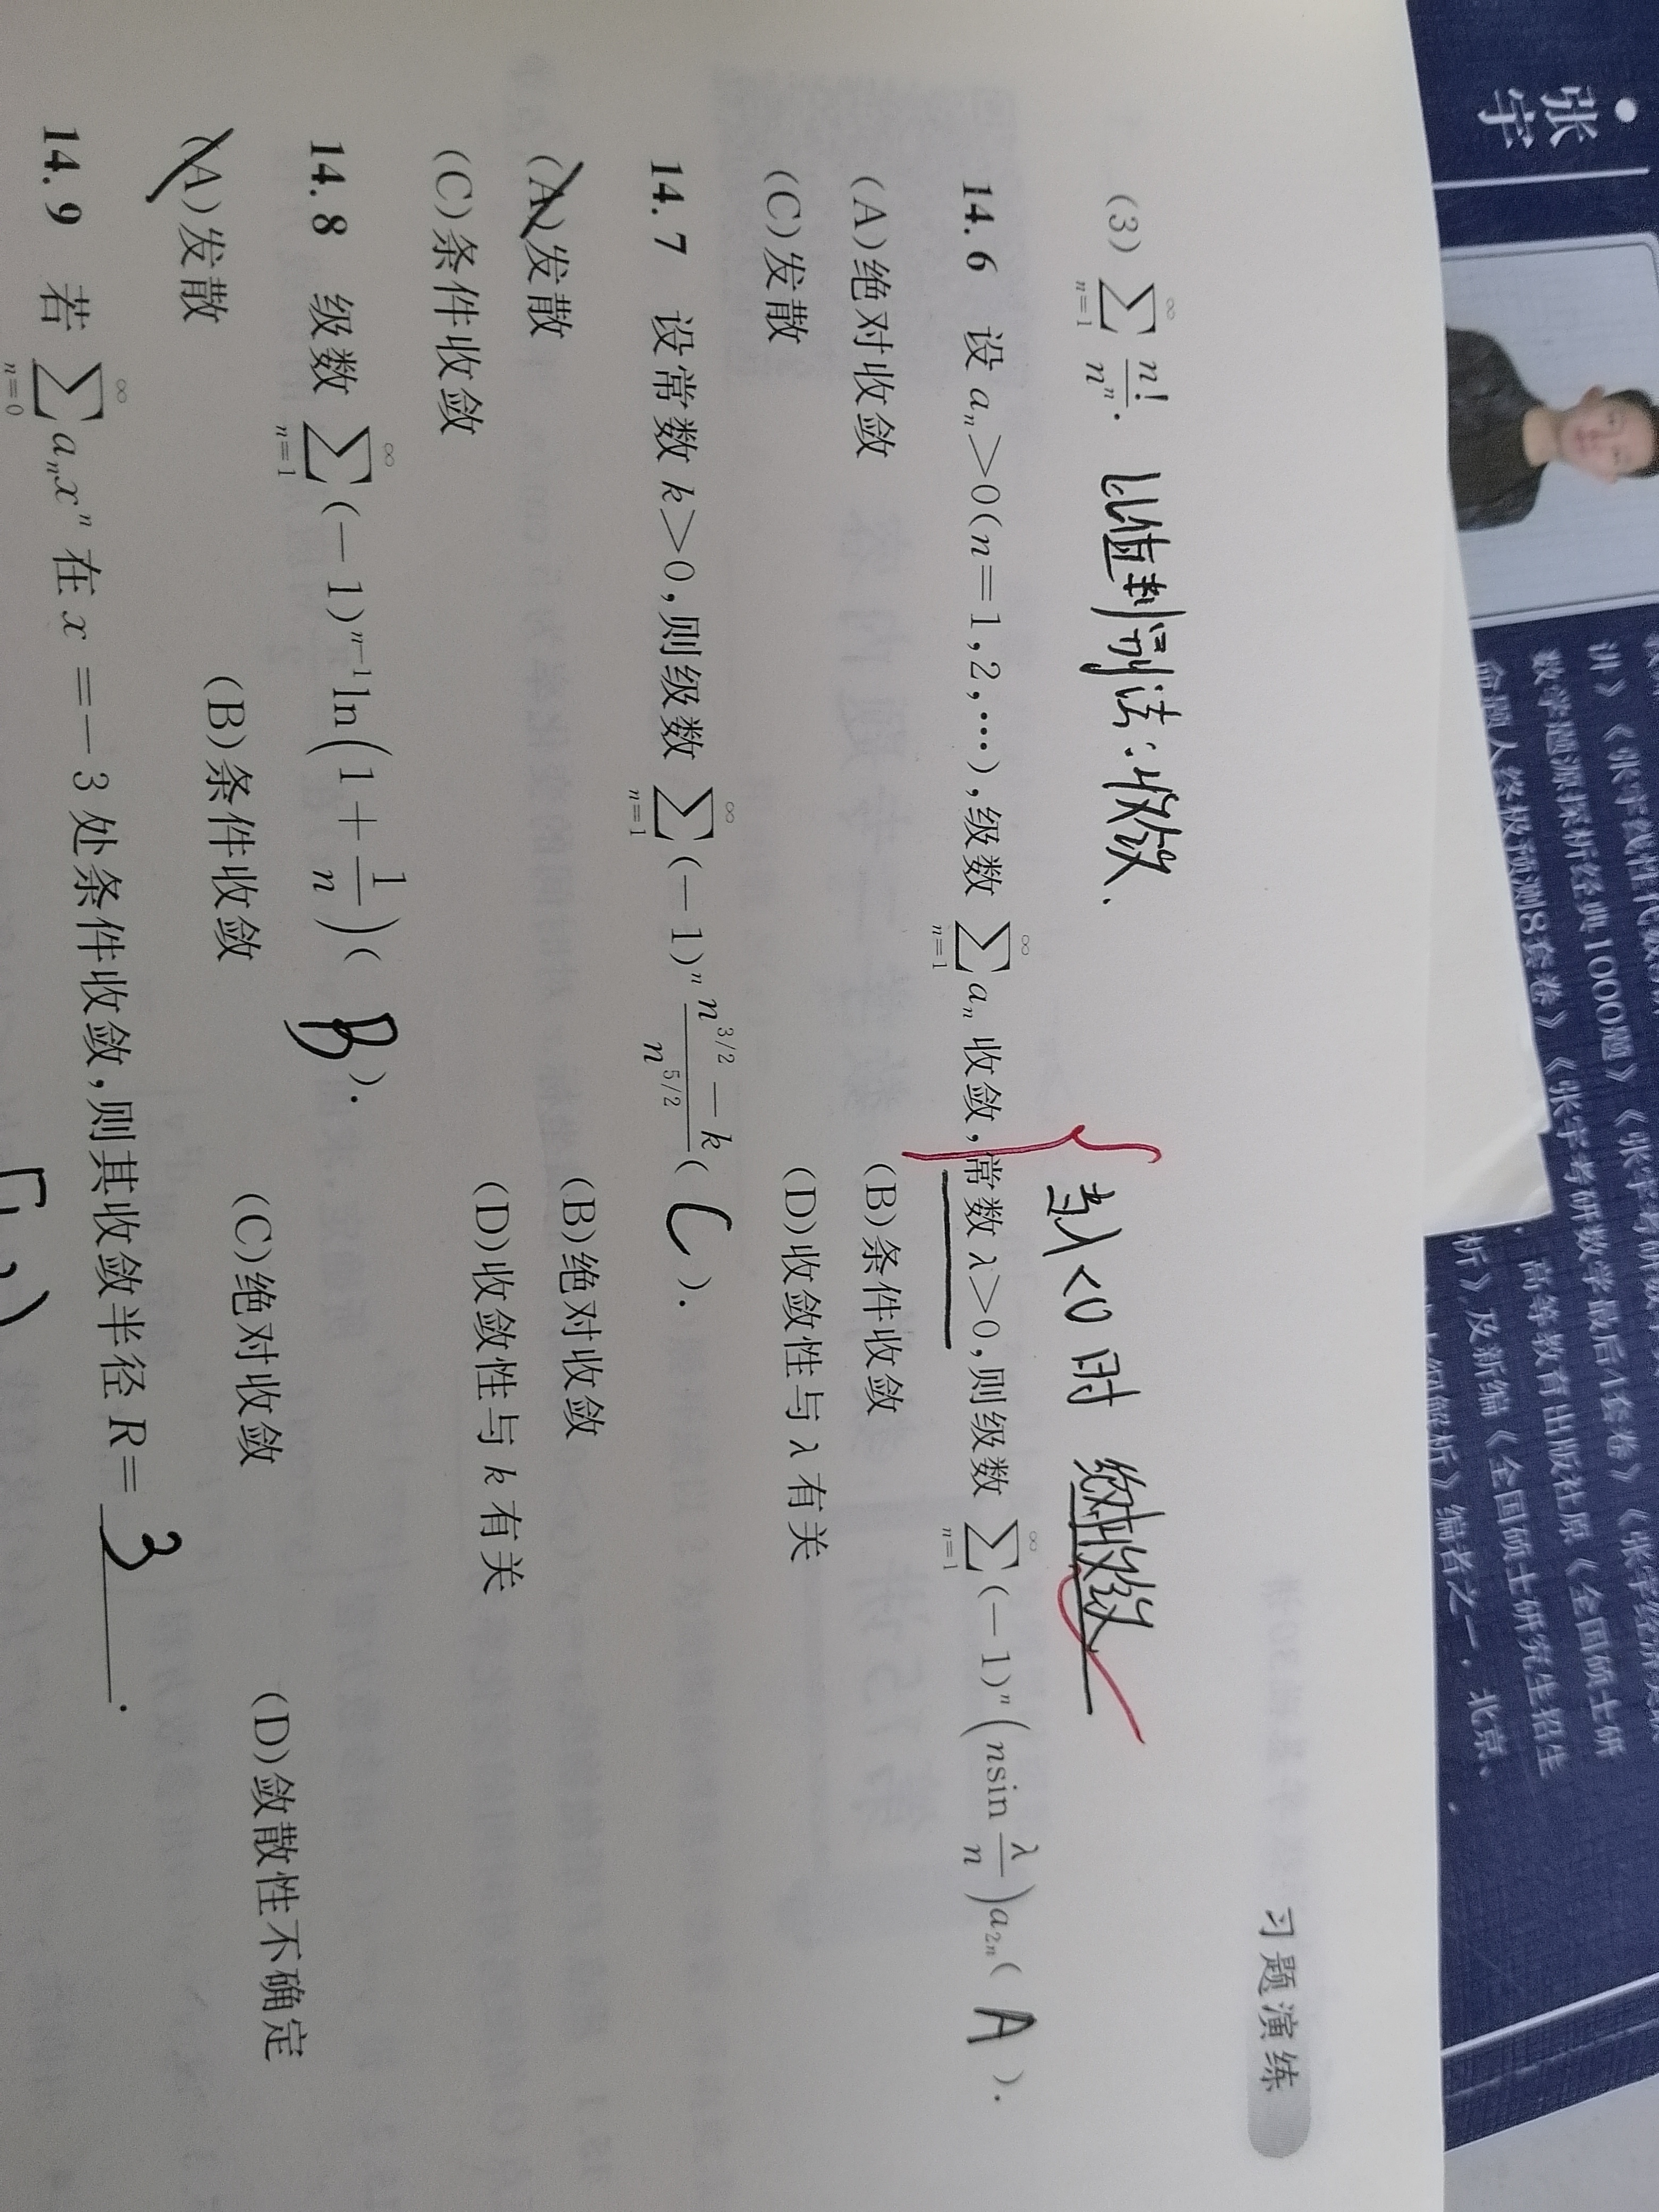 习题演练
(3) ∑_{n=1}^{∞} n!/n^n. 比值判别法:收敛.
当λ<0时 绝对收敛
14.6 设 a_n>0(n=1,2,…),级数 ∑_{n=1}^{∞} a_n 收敛,常数 λ>0,则级数 ∑_{n=1}^{∞} (-1)^n (n sin λ/n) a_{2n} ( A ).
(A)绝对收敛 (B)条件收敛
(C)发散 (D)收敛性与 λ 有关
14.7 设常数 k>0,则级数 ∑_{n=1}^{∞} (-1)^n (n^{3/2}-k)/n^{5/2} ( C ).
(A)发散 (B)绝对收敛
(C)条件收敛 (D)收敛性与 k 有关
14.8 级数 ∑_{n=1}^{∞} (-1)^{n-1} ln(1+1/n) ( B ).
(A)发散 (B)条件收敛 (C)绝对收敛 (D)敛散性不确定
14.9 若 ∑_{n=0}^{∞} a_n x^n 在 x=-3 处条件收敛,则其收敛半径 R= 3 .
张宇
讲》《张宇线性代数
数学题源探析经典1000题》《张宇考研数学最后4套卷》《张宇
命题人终极预测8套卷》《张宇考研数学
高等教育出版社原《全国硕士研
析》及新编《全国硕士研究生招生
解析》编者之一,北京、